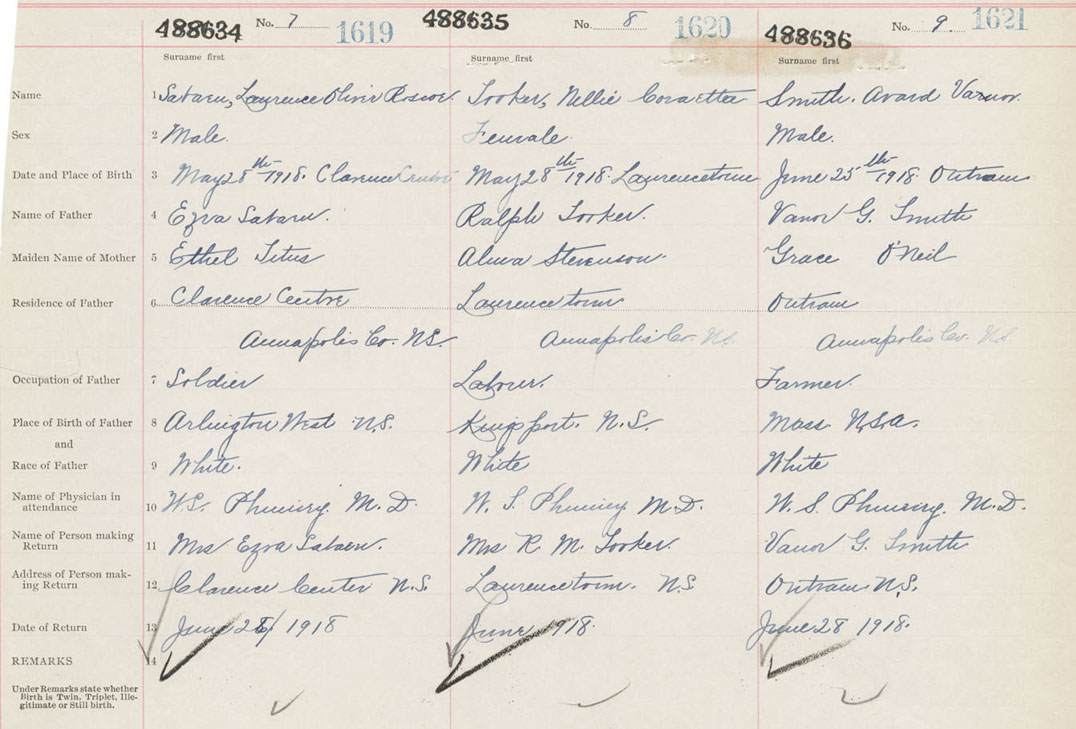 488634 No. 7 1619 488635 No. 8 1620 488636 No. 9. 1621
Surname first Surname first Surname first
Name 1 Laurence Oliver Roscoe. Tooker, Nellie Smith. Avard Varnor.
Sex 2 Male. Female. Male.
Date and Place of Birth 3 May 28th 1918. Clarence Centre May 28th 1918. Laurencetown June 25th 1918 Outram
Name of Father 4 Ezra Ralph Tooker. Vanor G. Smith
Maiden Name of Mother 5 Ethel Titus Alma Stevenson. Grace O'Neil
Residence of Father 6 Clarence Centre Laurencetown Outram
Annapolis Co. N.S. Annapolis Co. N.S. Annapolis Co. N.S.
Occupation of Father 7 Soldier Labour. Farmer.
Place of Birth of Father 8 Arlington West N.S. Kingsport. N.S. Mass U.S.A.
and
Race of Father 9 White. White White
Name of Physician in
attendance 10 W.S. Phinney. M.D. W. S. Phinney M.D. W. S. Phinney. M.D.
Name of Person making
Return 11 Mrs Ezra Mrs R. M. Tooker. Vanor G. Smith
Address of Person mak-
ing Return 12 Clarence Center N.S. Laurencetown. N.S Outram N.S.
Date of Return 13 June 1918 June 1918. June 28 1918.
REMARKS 14
Under Remarks state whether
Birth is Twin, Triplet, Ille-
gitimate or Still birth.